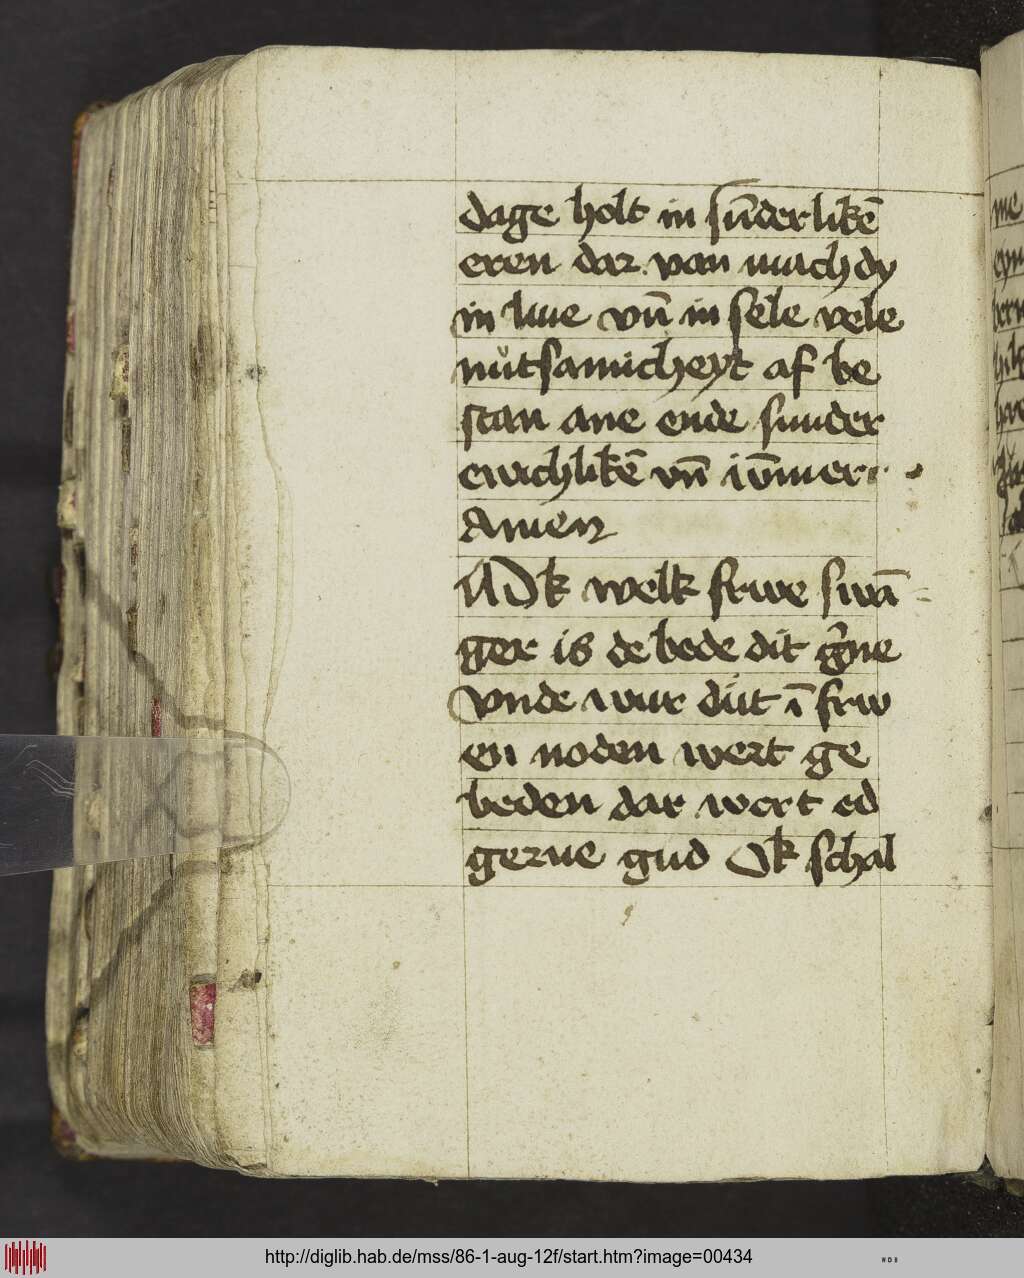 dage holt in sūderlikē
eren dar van mach dy
in liue vn̄ in sele vele
nůtsamicheyt af be
stan ane ende sunder
ewichlikē vn̄ iūmer
Amen
Ok welk frwe swā
ger is de bede dit ḡne
vnde wur důt ī frw
en noden wert ge
beden dar wert ed
gerne gud Ok schal
me
http://diglib.hab.de/mss/86-1-aug-12f/start.htm?image=00434